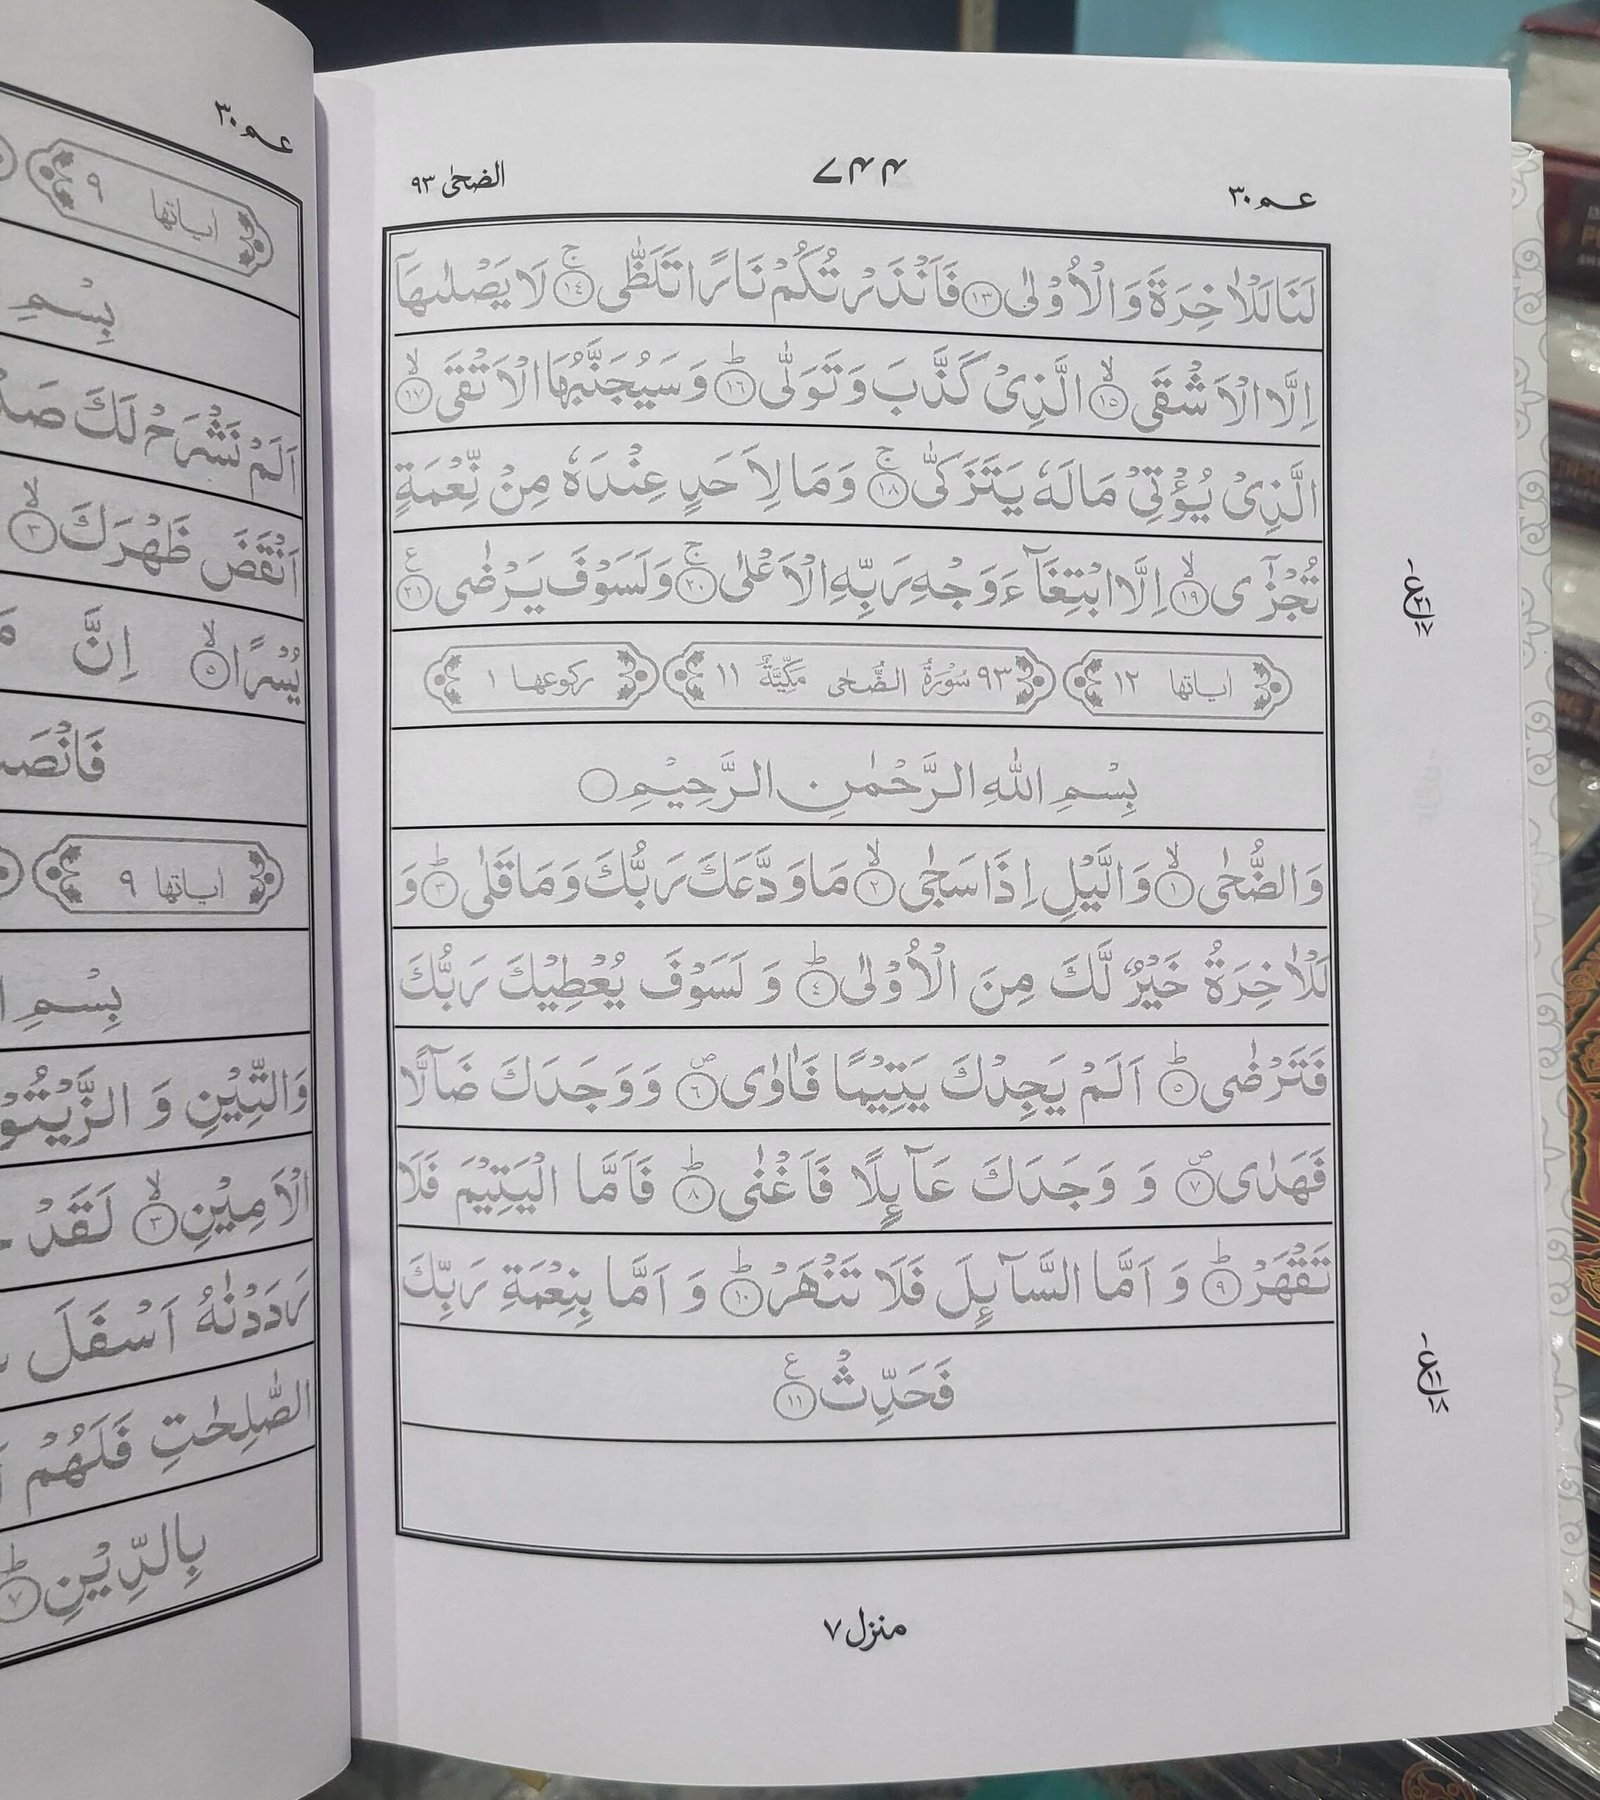 الضحٰى ٩٣
٧٤٤
عـم ٣٠
لَنَا لَلْاٰخِرَةَ وَالْاُوْلٰى ۝١٣ فَاَنْذَرْتُكُمْ نَارًا تَلَظّٰى ۝١٤ۚ لَا يَصْلٰىهَآ
اِلَّا الْاَشْقَى ۝١٥ۙ الَّذِىْ كَذَّبَ وَتَوَلّٰى ۝١٦ؕ وَسَيُجَنَّبُهَا الْاَتْقَى ۝١٧ۙ
الَّذِىْ يُؤْتِىْ مَالَهٗ يَتَزَكّٰى ۝١٨ۚ وَمَا لِاَحَدٍ عِنْدَهٗ مِنْ نِّعْمَةٍ
تُجْزٰٓى ۝١٩ۙ اِلَّا ابْتِغَآءَ وَجْهِ رَبِّهِ الْاَعْلٰى ۝٢٠ۚ وَلَسَوْفَ يَرْضٰى ۝٢١ع
اٰيـاتها ١٢
٩٣ سُوْرَةُ الضُّحٰى مَكِّيَّةٌ ١١
ركوعهـا ١
بِسْمِ اللّٰهِ الرَّحْمٰنِ الرَّحِيْمِ ۝
وَالضُّحٰى ۝١ۙ وَالَّيْلِ اِذَا سَجٰى ۝٢ۙ مَا وَدَّعَكَ رَبُّكَ وَمَا قَلٰى ۝٣ؕ وَ
لَلْاٰخِرَةُ خَيْرٌ لَّكَ مِنَ الْاُوْلٰى ۝٤ؕ وَ لَسَوْفَ يُعْطِيْكَ رَبُّكَ
فَتَرْضٰى ۝٥ؕ اَلَمْ يَجِدْكَ يَتِيْمًا فَاٰوٰى ۝٦۪ وَوَجَدَكَ ضَآلًّا
فَهَدٰى ۝٧۪ وَ وَجَدَكَ عَآئِلًا فَاَغْنٰى ۝٨ؕ فَاَمَّا الْيَتِيْمَ فَلَا
تَقْهَرْ ۝٩ؕ وَ اَمَّا السَّآئِلَ فَلَا تَنْهَرْ ۝١٠ؕ وَ اَمَّا بِنِعْمَةِ رَبِّكَ
فَحَدِّثْ ۝١١ع
منزل ٧
١
ع ٢١
١٧
١
ع ١١
١٨
عـم ٣٠
اٰيـاتها ٩
بِسْمِ
اَلَمْ نَشْرَحْ لَكَ
اَنْقَضَ ظَهْرَكَ ۝٣ۙ
يُسْرًا ۝٥ۙ اِنَّ
اٰيـاتها ٩
بِسْمِ
وَالتِّيْنِ وَ
الْاَمِيْنِ ۝٣ۙ لَقَدْ
رَدَدْنٰهُ اَسْفَلَ
الصّٰلِحٰتِ فَلَهُمْ
بِالدِّيْنِ ۝٧ؕ